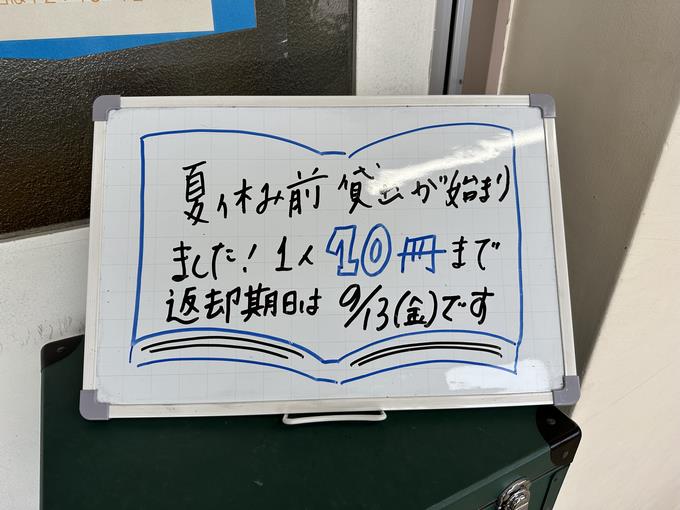 夏休み前貸出が始まり
ました！1人10冊まで
返却期日は9/13(金)です